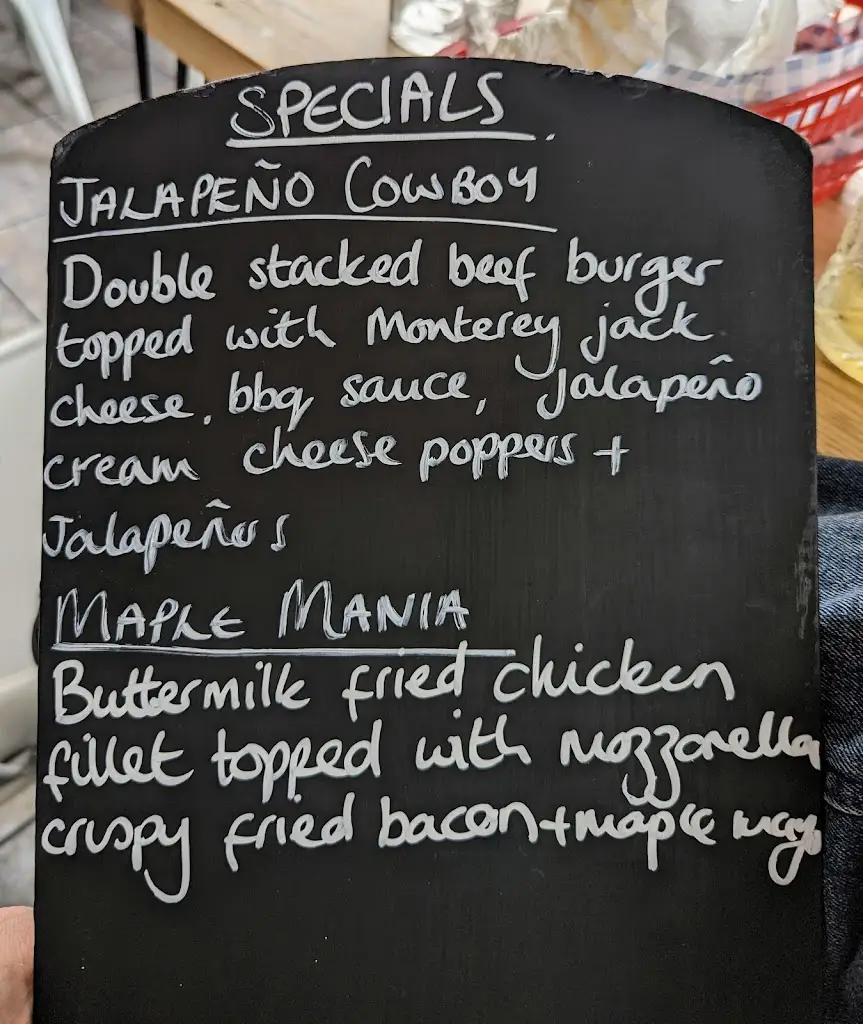 SPECIALS.
JALAPEÑO COWBOY
Double stacked beef burger
topped with Monterey jack
cheese, bbq sauce, jalapeño
cream cheese poppers +
Jalapeños
MAPLE MANIA
Buttermilk fried chicken
fillet topped with mozzarella
crispy fried bacon + maple mayo